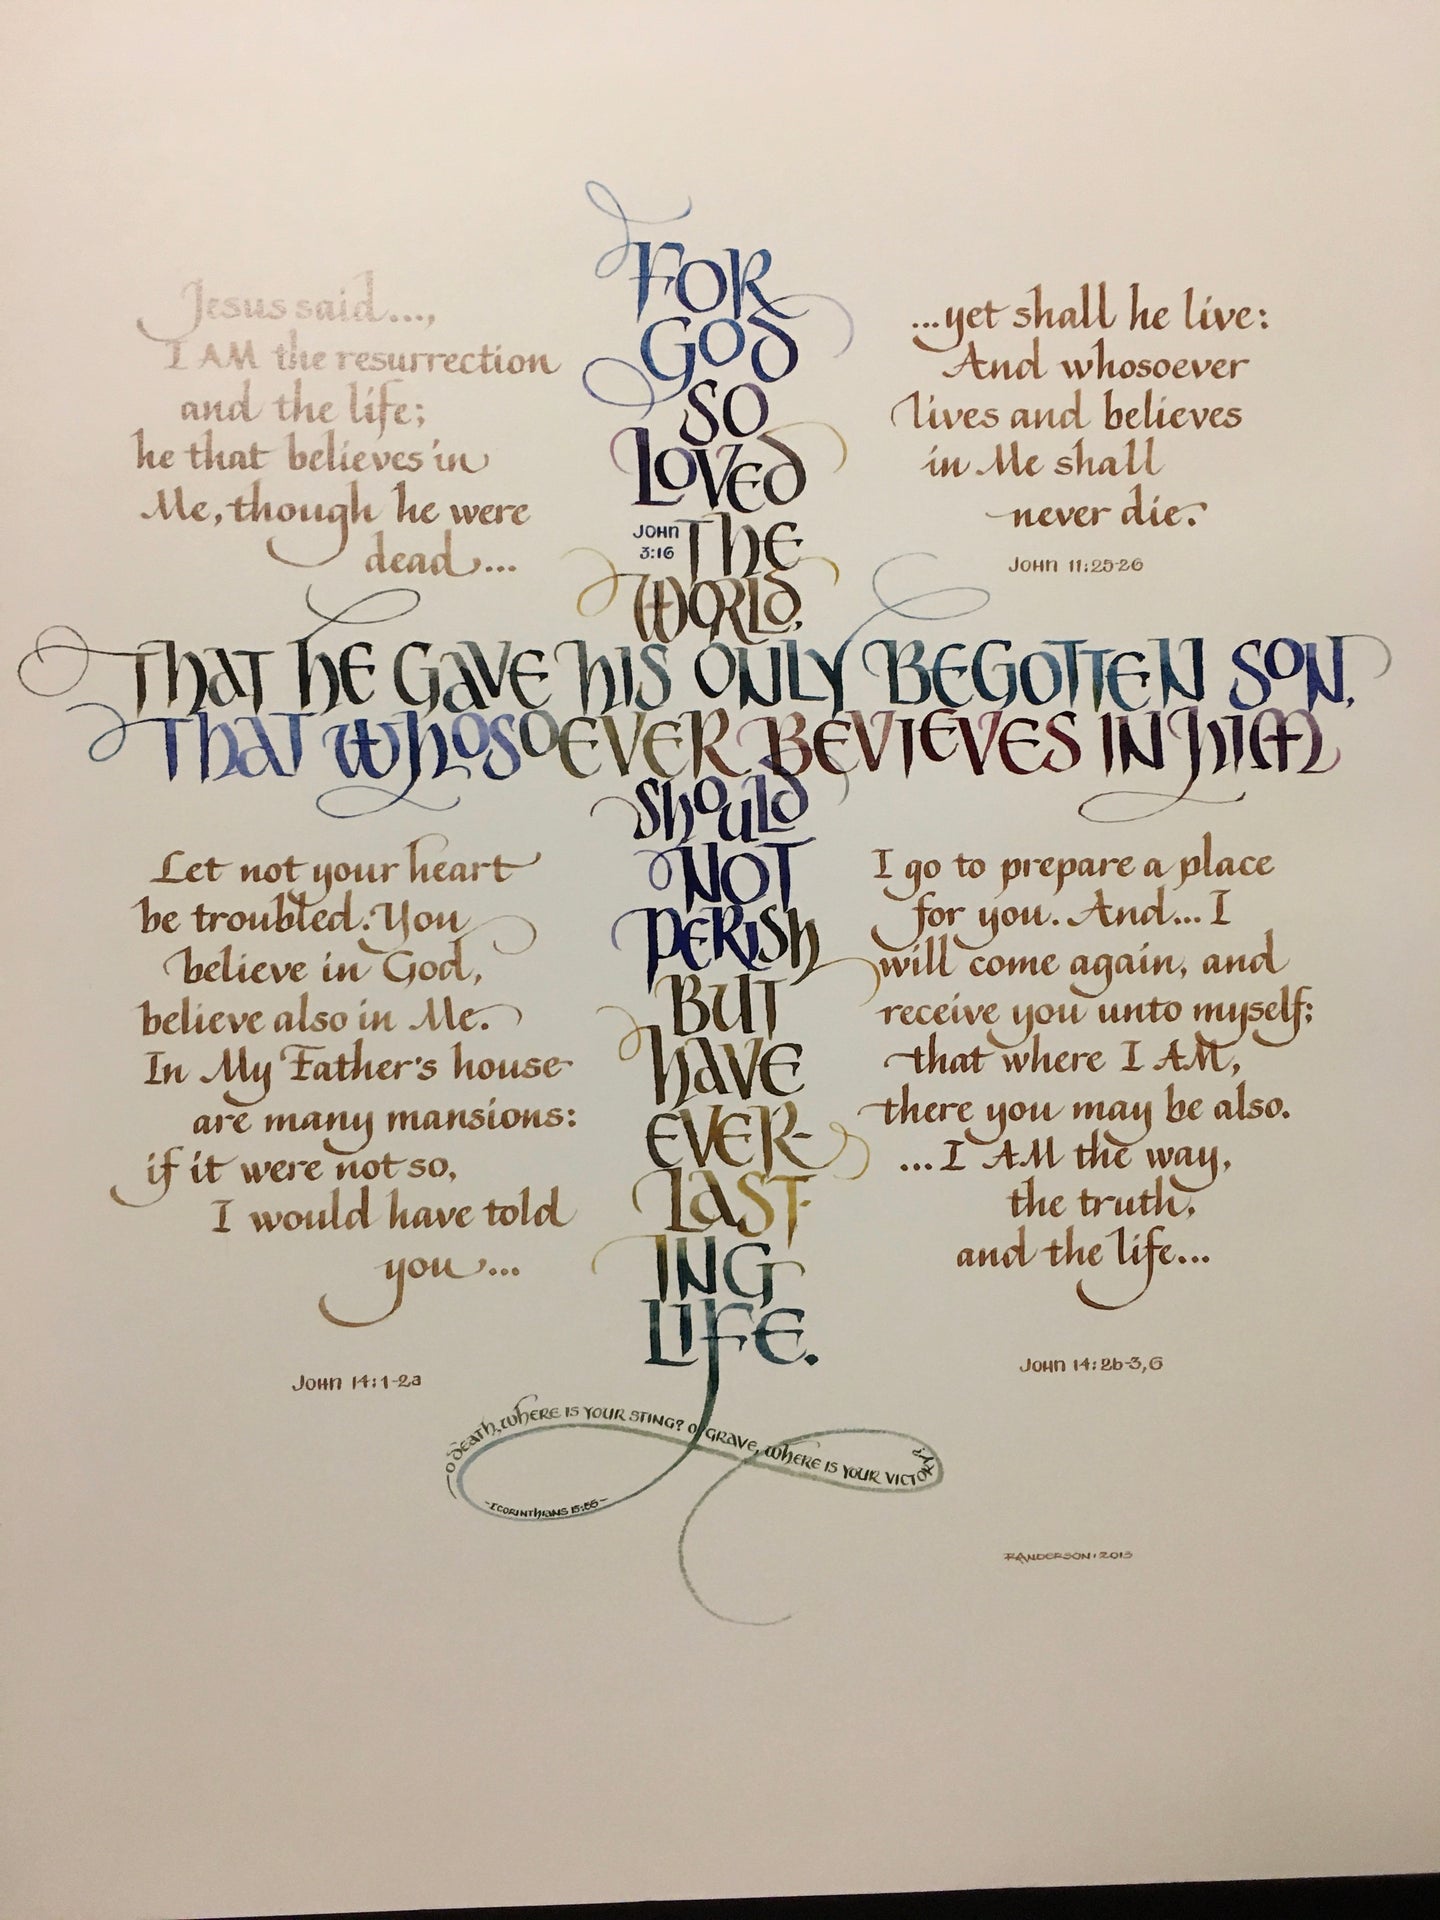 FOR
GOD
SO
LOVED
JOHN
3:16
THE
WORLD,
THAT HE GAVE HIS ONLY BEGOTTEN SON,
THAT WHOSOEVER BEVIEVES IN HIM
SHOULD
NOT
PERISH
BUT
HAVE
EVER-
LAST-
ING
LIFE.
Jesus said...,
I AM the resurrection
and the life;
he that believes in
Me, though he were
dead...
...yet shall he live:
And whosoever
lives and believes
in Me shall
never die.
JOHN 11:25-26
Let not your heart
be troubled. You
believe in God,
believe also in Me.
In My Father's house
are many mansions:
if it were not so,
I would have told
you...
JOHN 14:1-2a
I go to prepare a place
for you. And... I
will come again, and
receive you unto myself;
that where I AM,
there you may be also.
...I AM the way,
the truth,
and the life...
JOHN 14:2b-3,6
O DEATH, WHERE IS YOUR STING? O GRAVE, WHERE IS YOUR VICTORY?
-I CORINTHIANS 15:55-
RANDERSON·2013